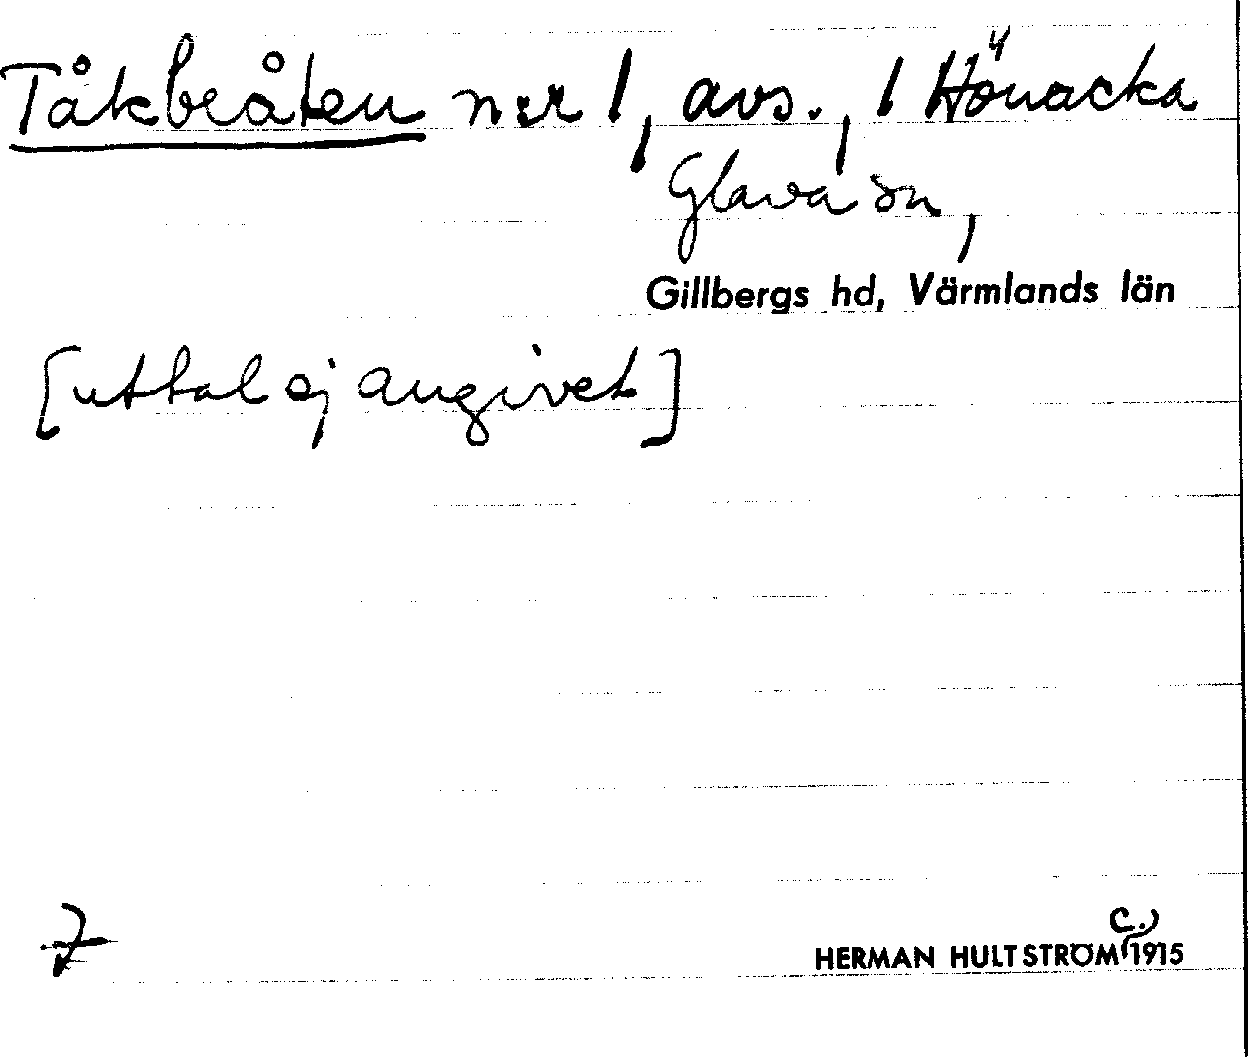 Tåkbråten nr 1, avs., 1 Hönacka
Glava sn,
Gillbergs hd, Värmlands län
[uttal ej angivet]
7
HERMAN HULTSTRÖM c.) 1915